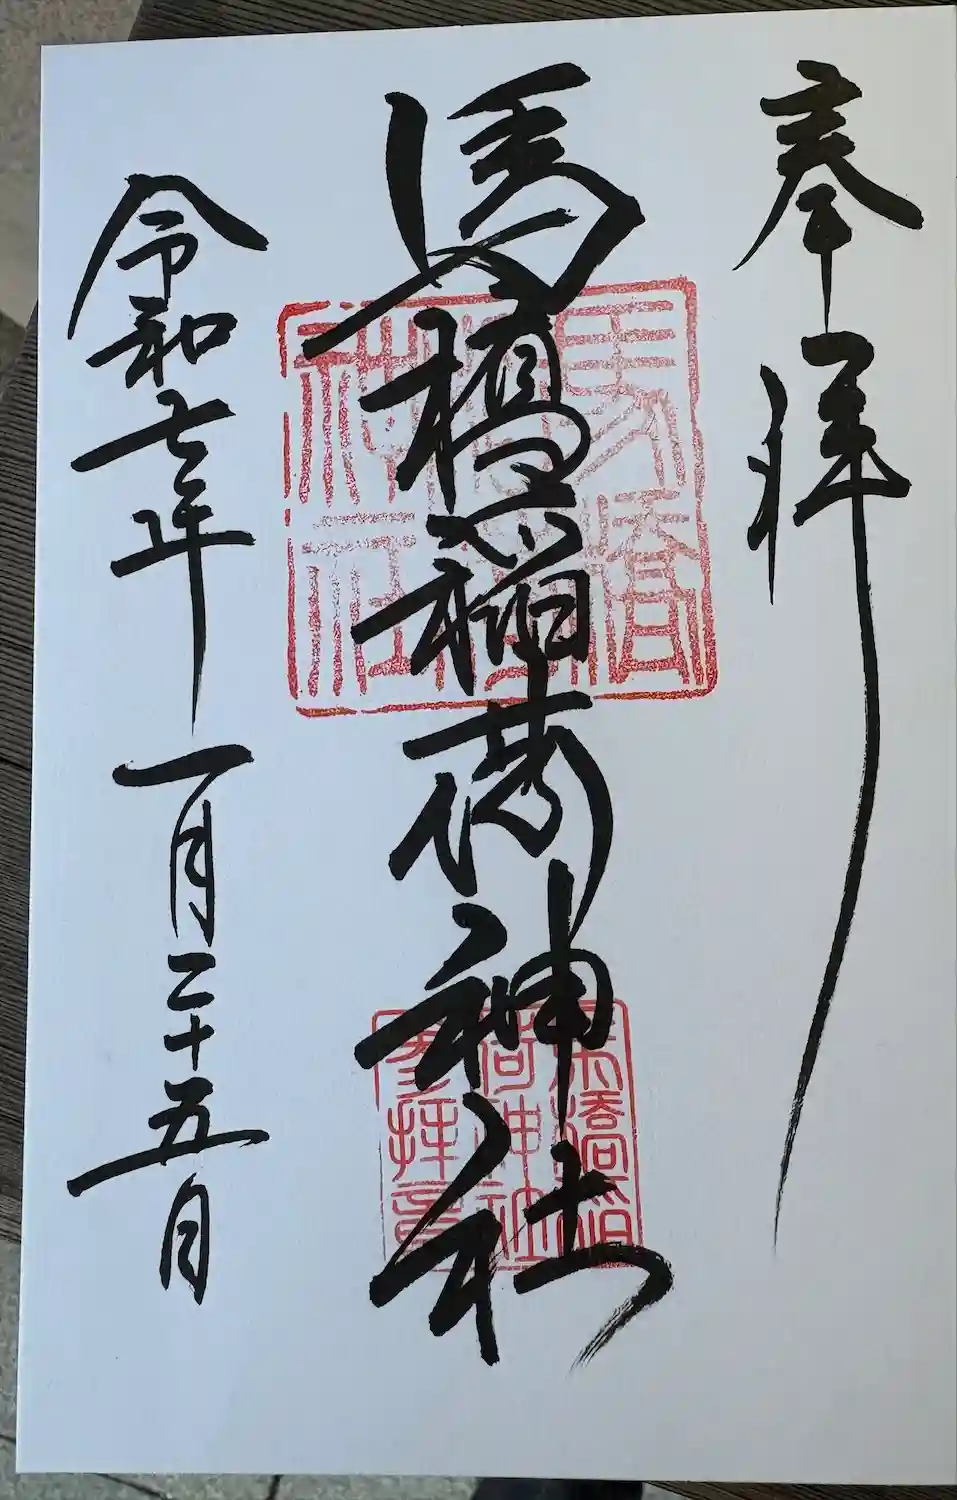 奉拝
馬橋稲荷神社
馬橋稲荷神社
馬橋稲荷神社参拝章
令和七年一月二十五日